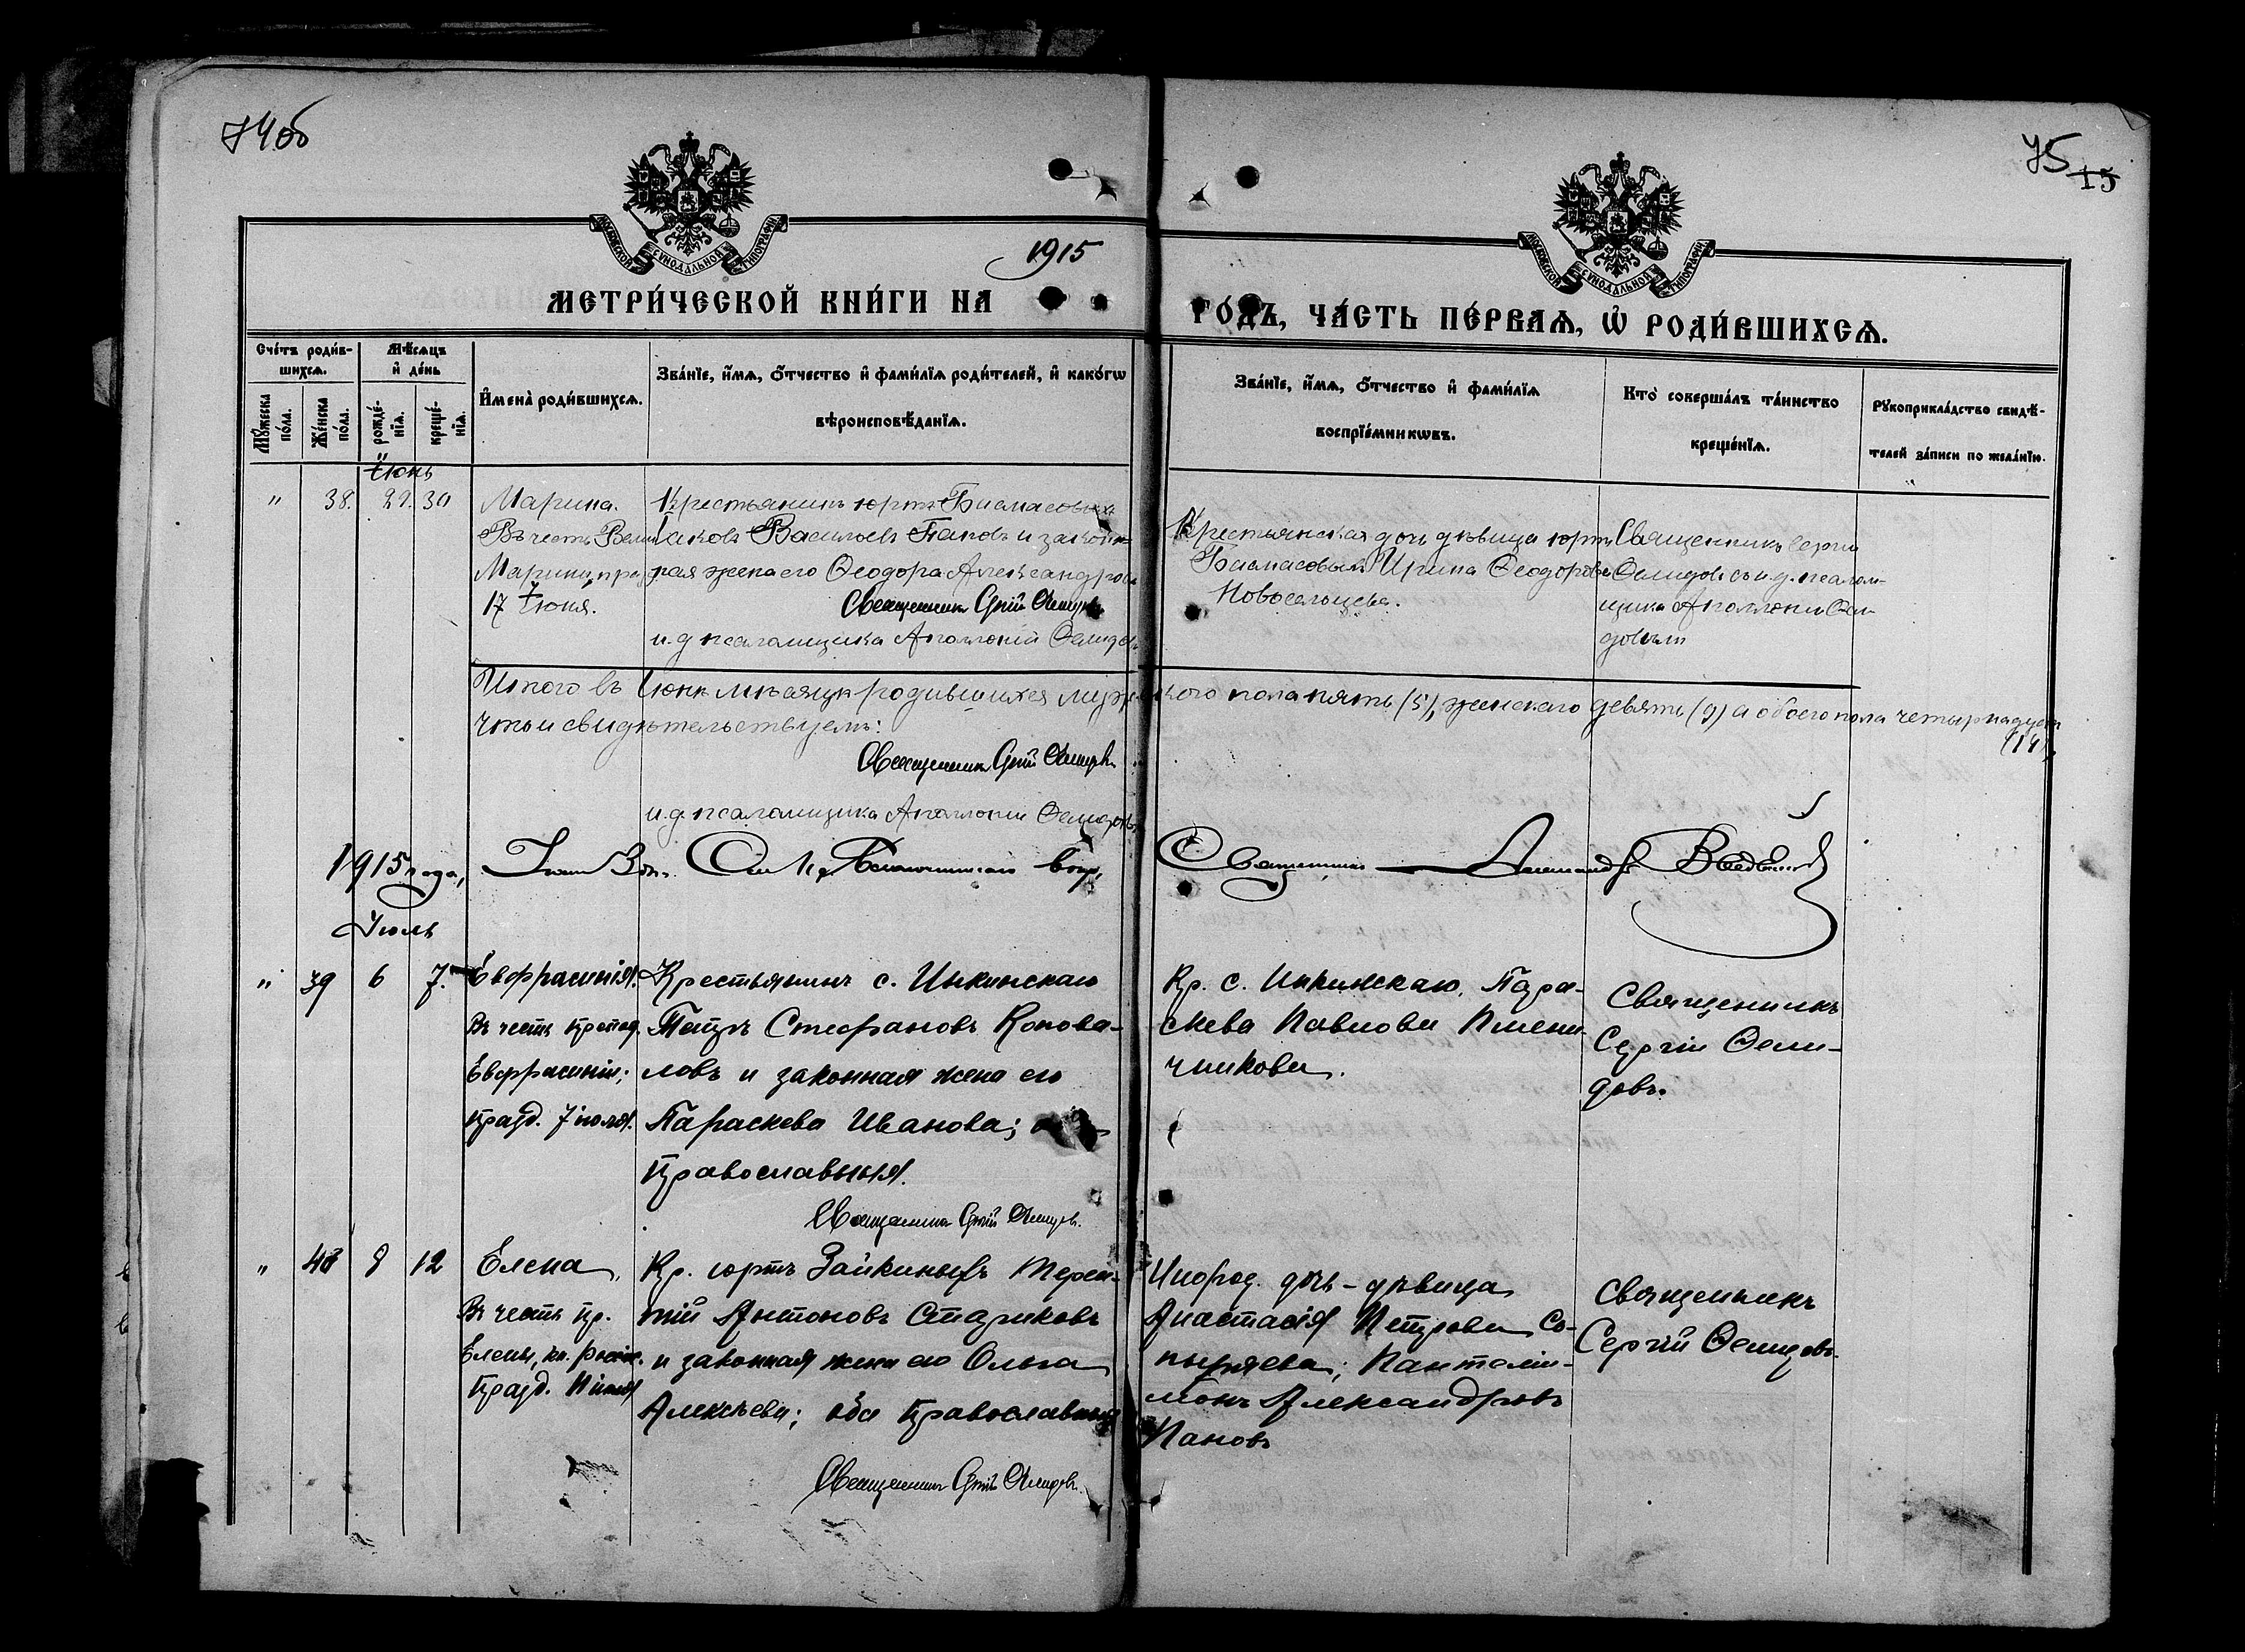 74об
75
15
МОСКОВСКОЙ СѴНОДАЛЬНОЙ ТИПОГРАФІИ
МОСКОВСКОЙ СѴНОДАЛЬНОЙ ТИПОГРАФІИ
1915
МЕТРИ́ЧЕСКОЙ КНИ́ГИ НА
ГО́ДЪ, ЧА́СТЬ ПЕ́РВАѦ, Ѡ҆ РОДИ́ВШИХСѦ.
Сче́тъ роди́в-
шихсѧ.
Мꙋ́жеска по́ла.
Же́нска по́ла.
Мѣ́сѧцъ
и҆ де́нь
рожде́-
нїѧ.
креще́-
нїѧ.
И҆мена̀ роди́вшихсѧ.
Зва́нїе, и҆́мѧ, ѻ҆́тчество и҆ фами́лїѧ роди́телей, и҆ како́гѡ
вѣроисповѣ́данїѧ.
Зва́нїе, и҆́мѧ, ѻ҆́тчество и҆ фами́лїѧ
воспрїе́мникѡвъ.
Кто̀ соверша́лъ та́инство
креще́нїѧ.
Рꙋкоприкла́дство свидѣ́-
телей за́писи по жела́нїю.
Іюнь
" 38. 29. 30
Марина.
Въ честь Велик
Марины, пра
17 Іюня.
Крестьянинъ юртъ Басмасовыхъ
Іаковъ Васильевъ Пановъ и закон-
ная жена его Ѳеодора Александрова
Священникъ Сергій Ѳемидовъ
и.д. псаломщика Аполлоній Ѳемидовъ
Крестьянская дочь дѣвица юртъ
Басмасовыхъ Ирина Ѳеодорова
Новосельцева.
Священникъ Сергій
Ѳемидовъ съ и.д. псалом-
щика Аполлоніи Ѳеми-
довымъ
Итого въ Іюнѣ мѣсяцѣ родившихся мужского пола пять (5), женскаго девять (9) а обоего пола четырнадцать
(14),
что и свидѣтельствуемъ:
Священникъ Сергій Ѳемидовъ.
и.д. псаломщика Аполлоній Ѳемидовъ
1915 года,
Священникъ Александръ
Іюль
" 39 6 7.
Евфрасинія.
Въ честь препод.
Евфрасиніи;
празд. 7 іюля.
Крестьянинъ с. Инкинскаго
Петръ Стефановъ Конова-
ловъ и законная жена его
Параскева Иванова;
православныя.
Священникъ Сергій Ѳемидовъ.
Кр. с. Инкинскаго, Пара-
скева Павлова Имени-
чникова.
Священникъ
Сергій Ѳеми-
довъ.
" 40 8 12
Елена,
Въ честь пр.
Елены, кн. Россійс.
празд. 11 іюля
Кр. юртъ Зайкиныхъ Терен-
тій Антоновъ Стариковъ
и законная жена его Ольга
Алексѣева; оба православныя
Священникъ Сергій Ѳемидовъ.
Инород. дочь - дѣвица
Анастасія Петрова Со-
пыряева; Пантелій-
монъ Александровъ
Пановъ
Священникъ
Сергій Ѳемидовъ.